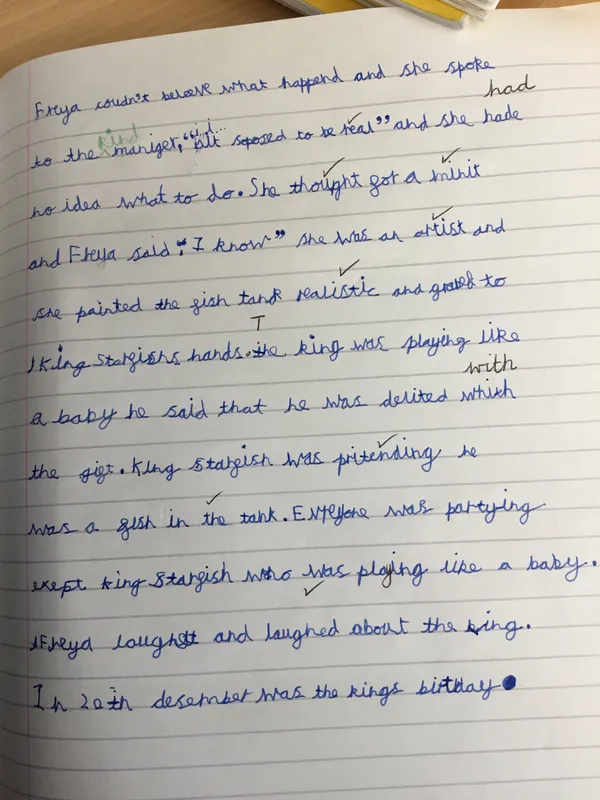 Freya coudn't beleeve what happend and she spoke
had
kind
to the maniger, "it sposed to be real" and she hade
no idea what to do. She thought got a minit
and Freya said "I know" she was an artist and
she painted the gish tank realistic and to
T
King Stargishs hands. the king was playing like
with
a baby he said that he was delited which
the gigt. King Stargish was pritending he
was a gish in the tank. Enyone was partying
exept king Stargish who was playing like a baby.
Freya laught and laughed about the king.
In 20th desember was the kings birthday